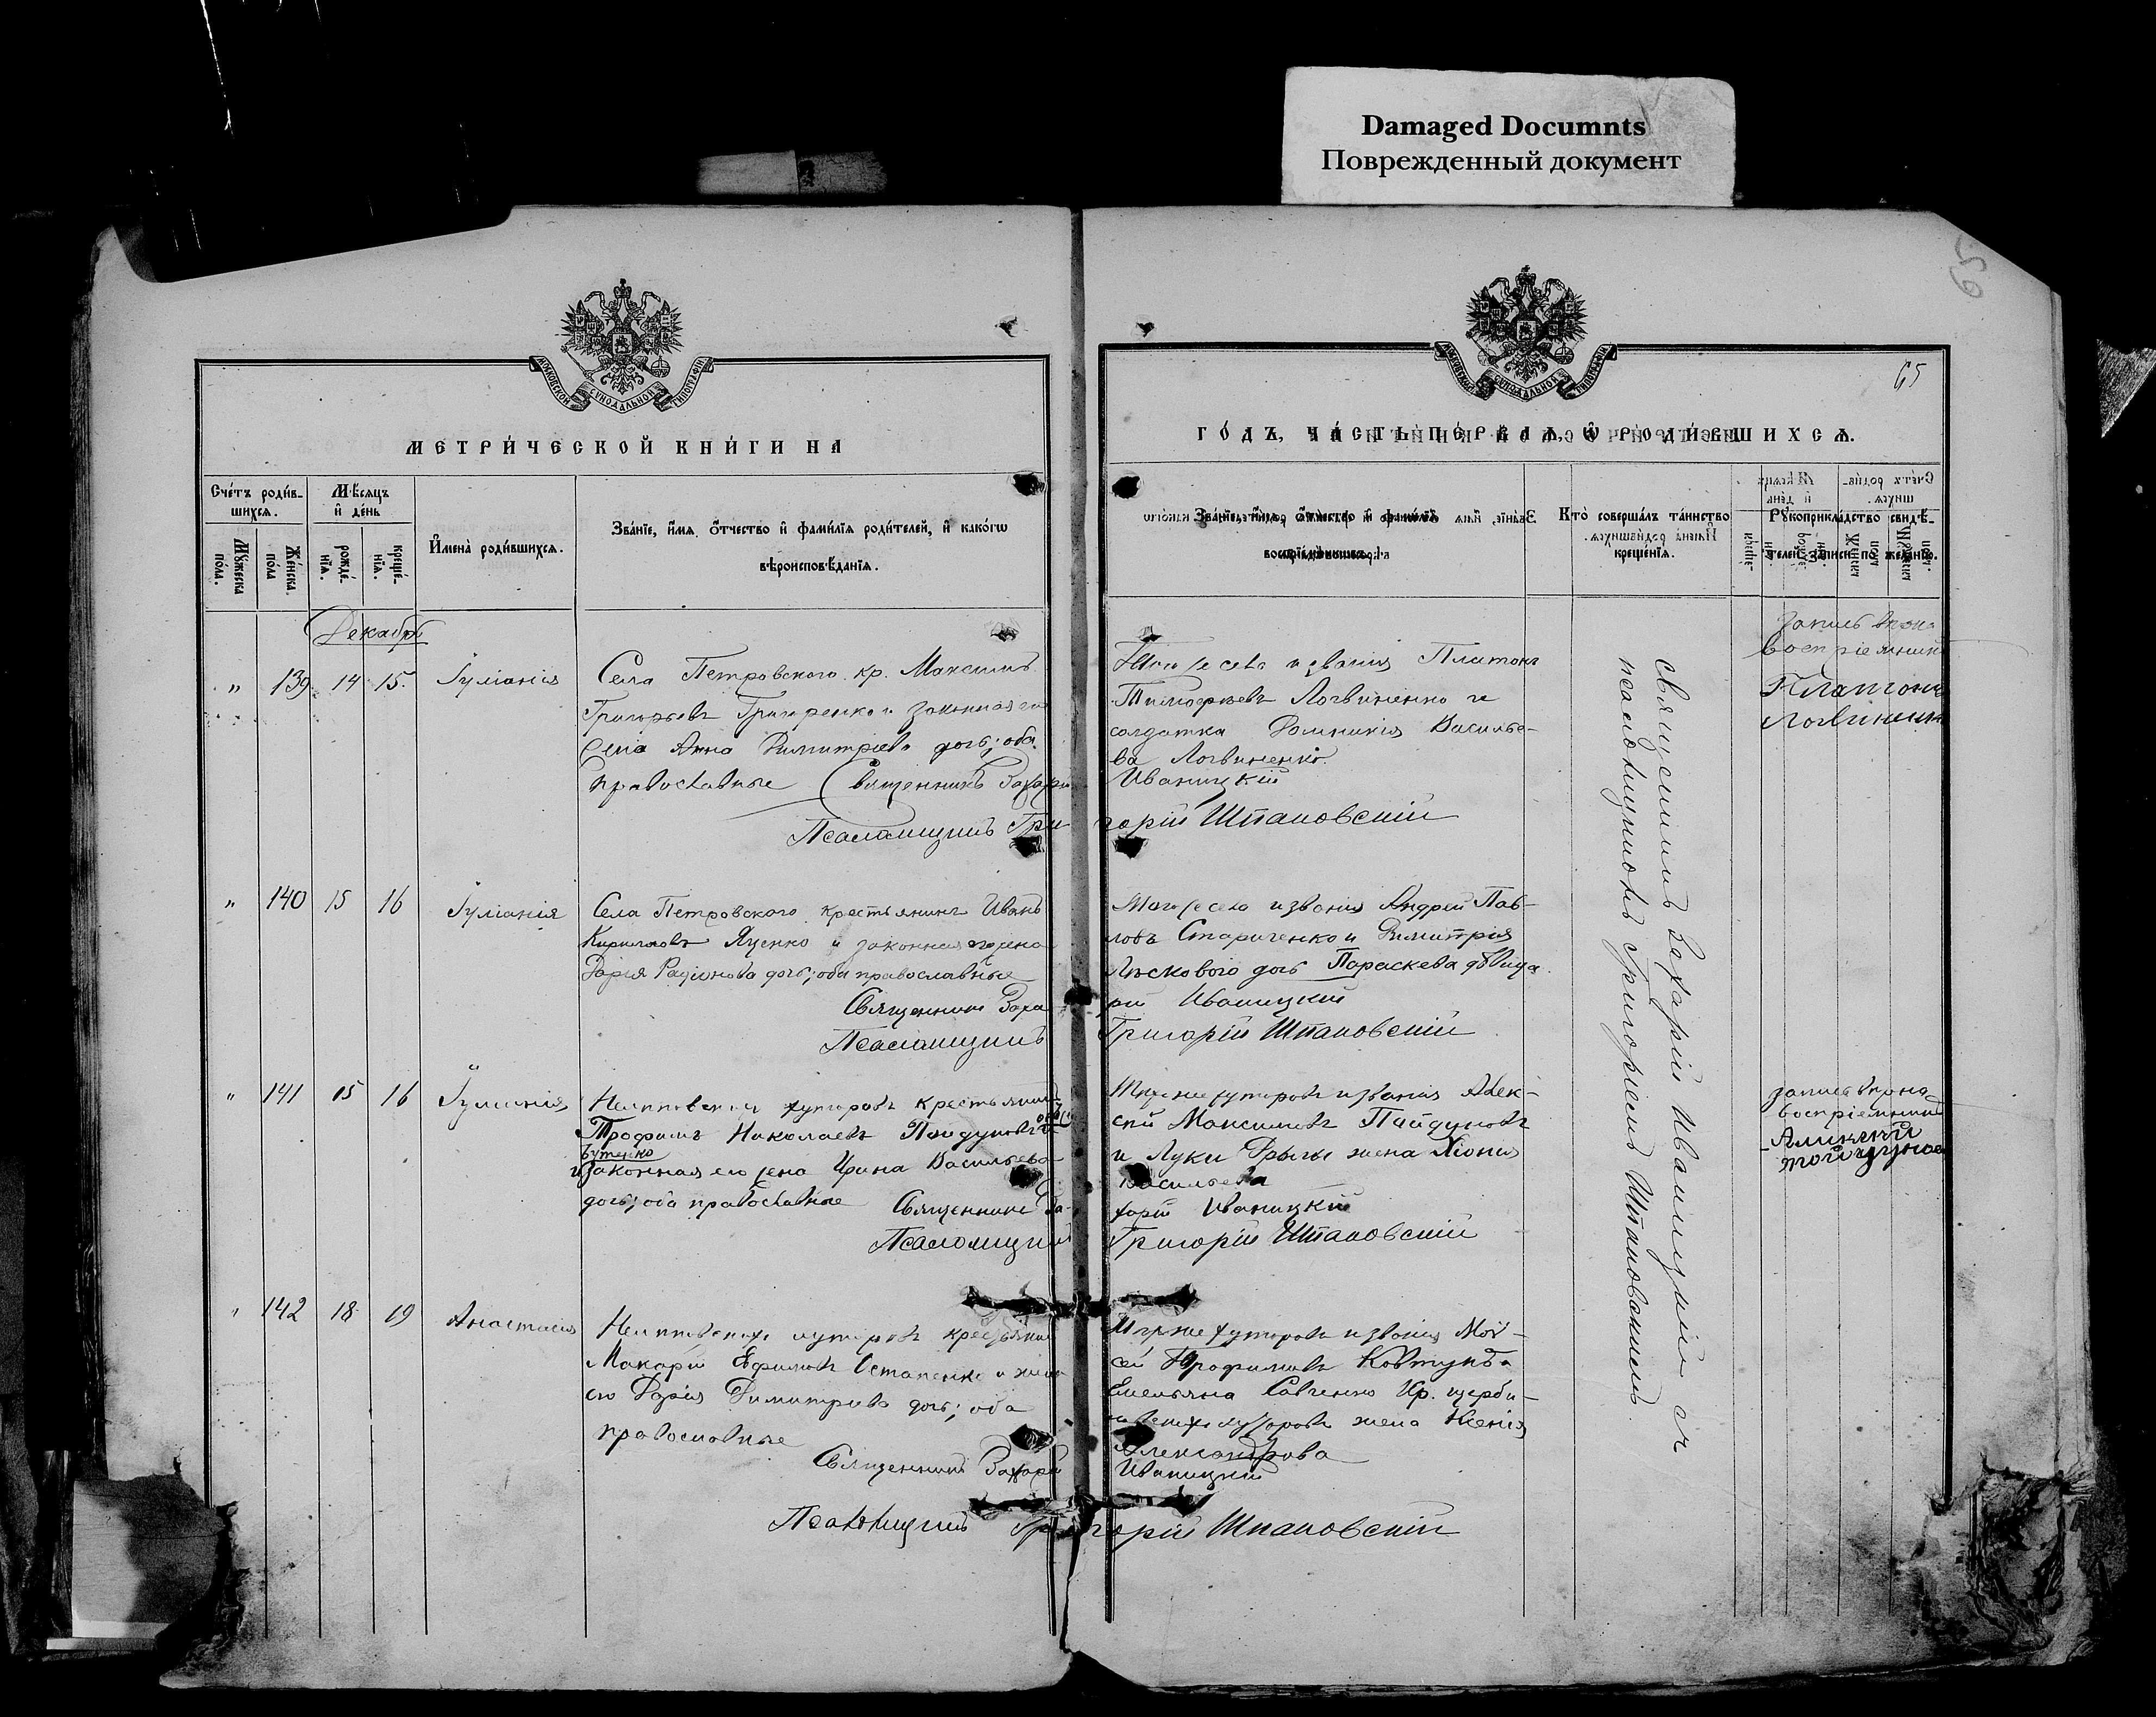 Damaged Documnts
Поврежденный документ
65
МОСКОВСКОЙ СѴНОДАЛЬНОЙ ТИПОГРАФІИ
МОСКОВСКОЙ СѴНОДАЛЬНОЙ ТИПОГРАФІИ
65
МЕТРИ́ЧЕСКОЙ КНИ́ГИ НА
ГО́ДЪ, ЧА́СТЬ ПЕ́РВАѦ, Ѡ РОДИ́ВШИХСѦ.
Сче́тъ роди́в-
шихсѧ.
Мꙋ́жеска по́ла.
Же́нска по́ла
Мѣ́сѧцъ
и҆ де́нь
рожде́-
нїѧ.
креще́-
нїѧ.
И҆мена̀ роди́вшихсѧ.
Зва́нїе, и҆́мѧ, ѻ҆́тчество и҆ фами́лїѧ роди́телей, и҆ како́гѡ
вѣроисповѣ́данїѧ.
Зва́нїе, и҆́мѧ, ѻ҆́тчество и҆ фами́лїѧ
воспрїе́мникѡвъ.
Кто̀ соверша́лъ та́инство
креще́нїѧ.
Рꙋкоприкла́дство свидѣ́-
телей за́писи по жела́нїю.
Декабрь
" 139 14 15. Іуліанія
Села Петровскаго кр. Максимъ
Григорьевъ Григоренко и законная его
жена Анна Димитріева дочь; оба
православные Священникъ Захарій
Псаломщикъ Гри
Того же села и званія Платонъ
Тимофеевъ Логвиненко и
солдатка Домникія Василье-
ва Логвиненко.
Иваницкій
горій Шпановскій
Священникъ Захарій Иваницкій съ
псаломщикомъ Григоріемъ Шпановскимъ.
воспріемникъ
Платонъ
Логвиненк
" 140 15 16 Іуліанія
Села Петровскаго крестьянинъ Иванъ
Кирилловъ Яценко и законная его жена
Дарія Радіонова дочь; оба православные
Священникъ Заха
Псаломщикъ
Того же села и званія Андрей Пав-
ловъ Стариченко и Димитрія
дочь Параскева дѣвица.
рій Иваницкій
Григорій Шпановскій
" 141 15 16 Іуліанія
хуторовъ крестьянинъ
Трофимъ Николаевъ Пайдуновъ
Бутенко
и законная его жена Ирина Васильева
дочь; оба православные Священникъ За-
Псаломщикъ
Тѣхъ же хуторовъ и званія Алек-
сѣй Максимовъ Пайдуновъ
и Луки жена Хіонія
Васильева
харій Иваницкій
Григорій Шпановскій
воспріемникъ
" 142 18 19 Анастасія
хуторовъ крестьянинъ
Макарій Ефимовъ Остапенко и жена
его Дарія Димитріева дочь; оба
православные
Священникъ Захарій
Псаломщикъ Гри
Тѣхъ же хуторовъ и званія Мой-
сей Трофимовъ Ковтунъ и
Емельяна Савченко Кр. щерби-
новскихъ хуторовъ жена Ксенія
Александрова
Иваницкій
горій Шпановскій